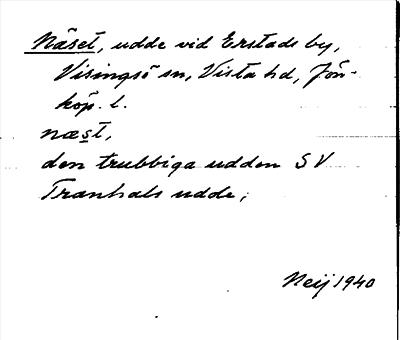 Näset, udde vid Erstads by,
Visingsö sn, Vista hd, Jön-
köp. l.
næst,
den trubbiga udden SV
Tranhals udde;
Neij 1940